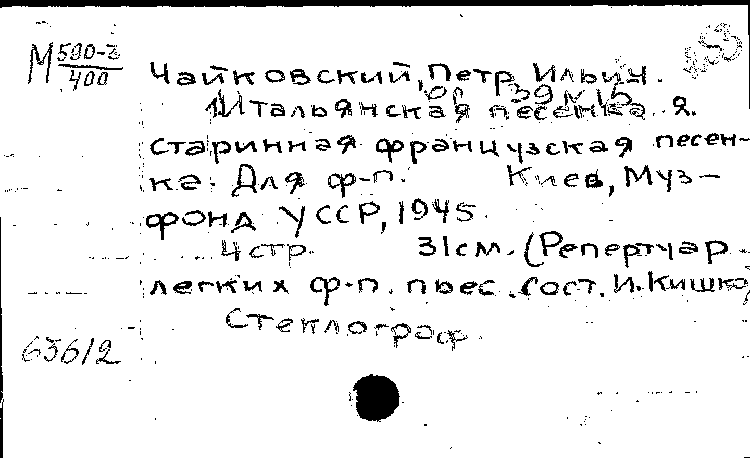 М 590-2/400
Чайковский, Петр Ильич.
ор 39 № 15
Итальянская песенка. я.
старинная французская песен-
ка. Для ф-п. Киев, Муз-
фонд УССР, 1945.
4 стр. 31 см. (Репертуар
легких ф-п. пьес. Сост. И. Кишко,
Стеклограф.
63612